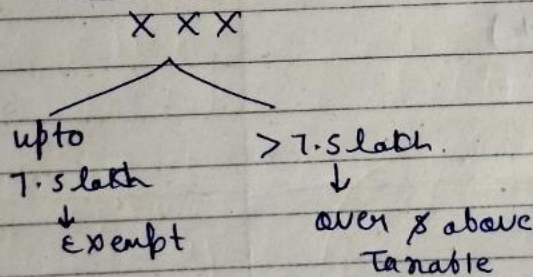 X X X
upto
7.5 lakh
↓
Exempt
> 7.5 lakh.
↓
over & above
Taxable